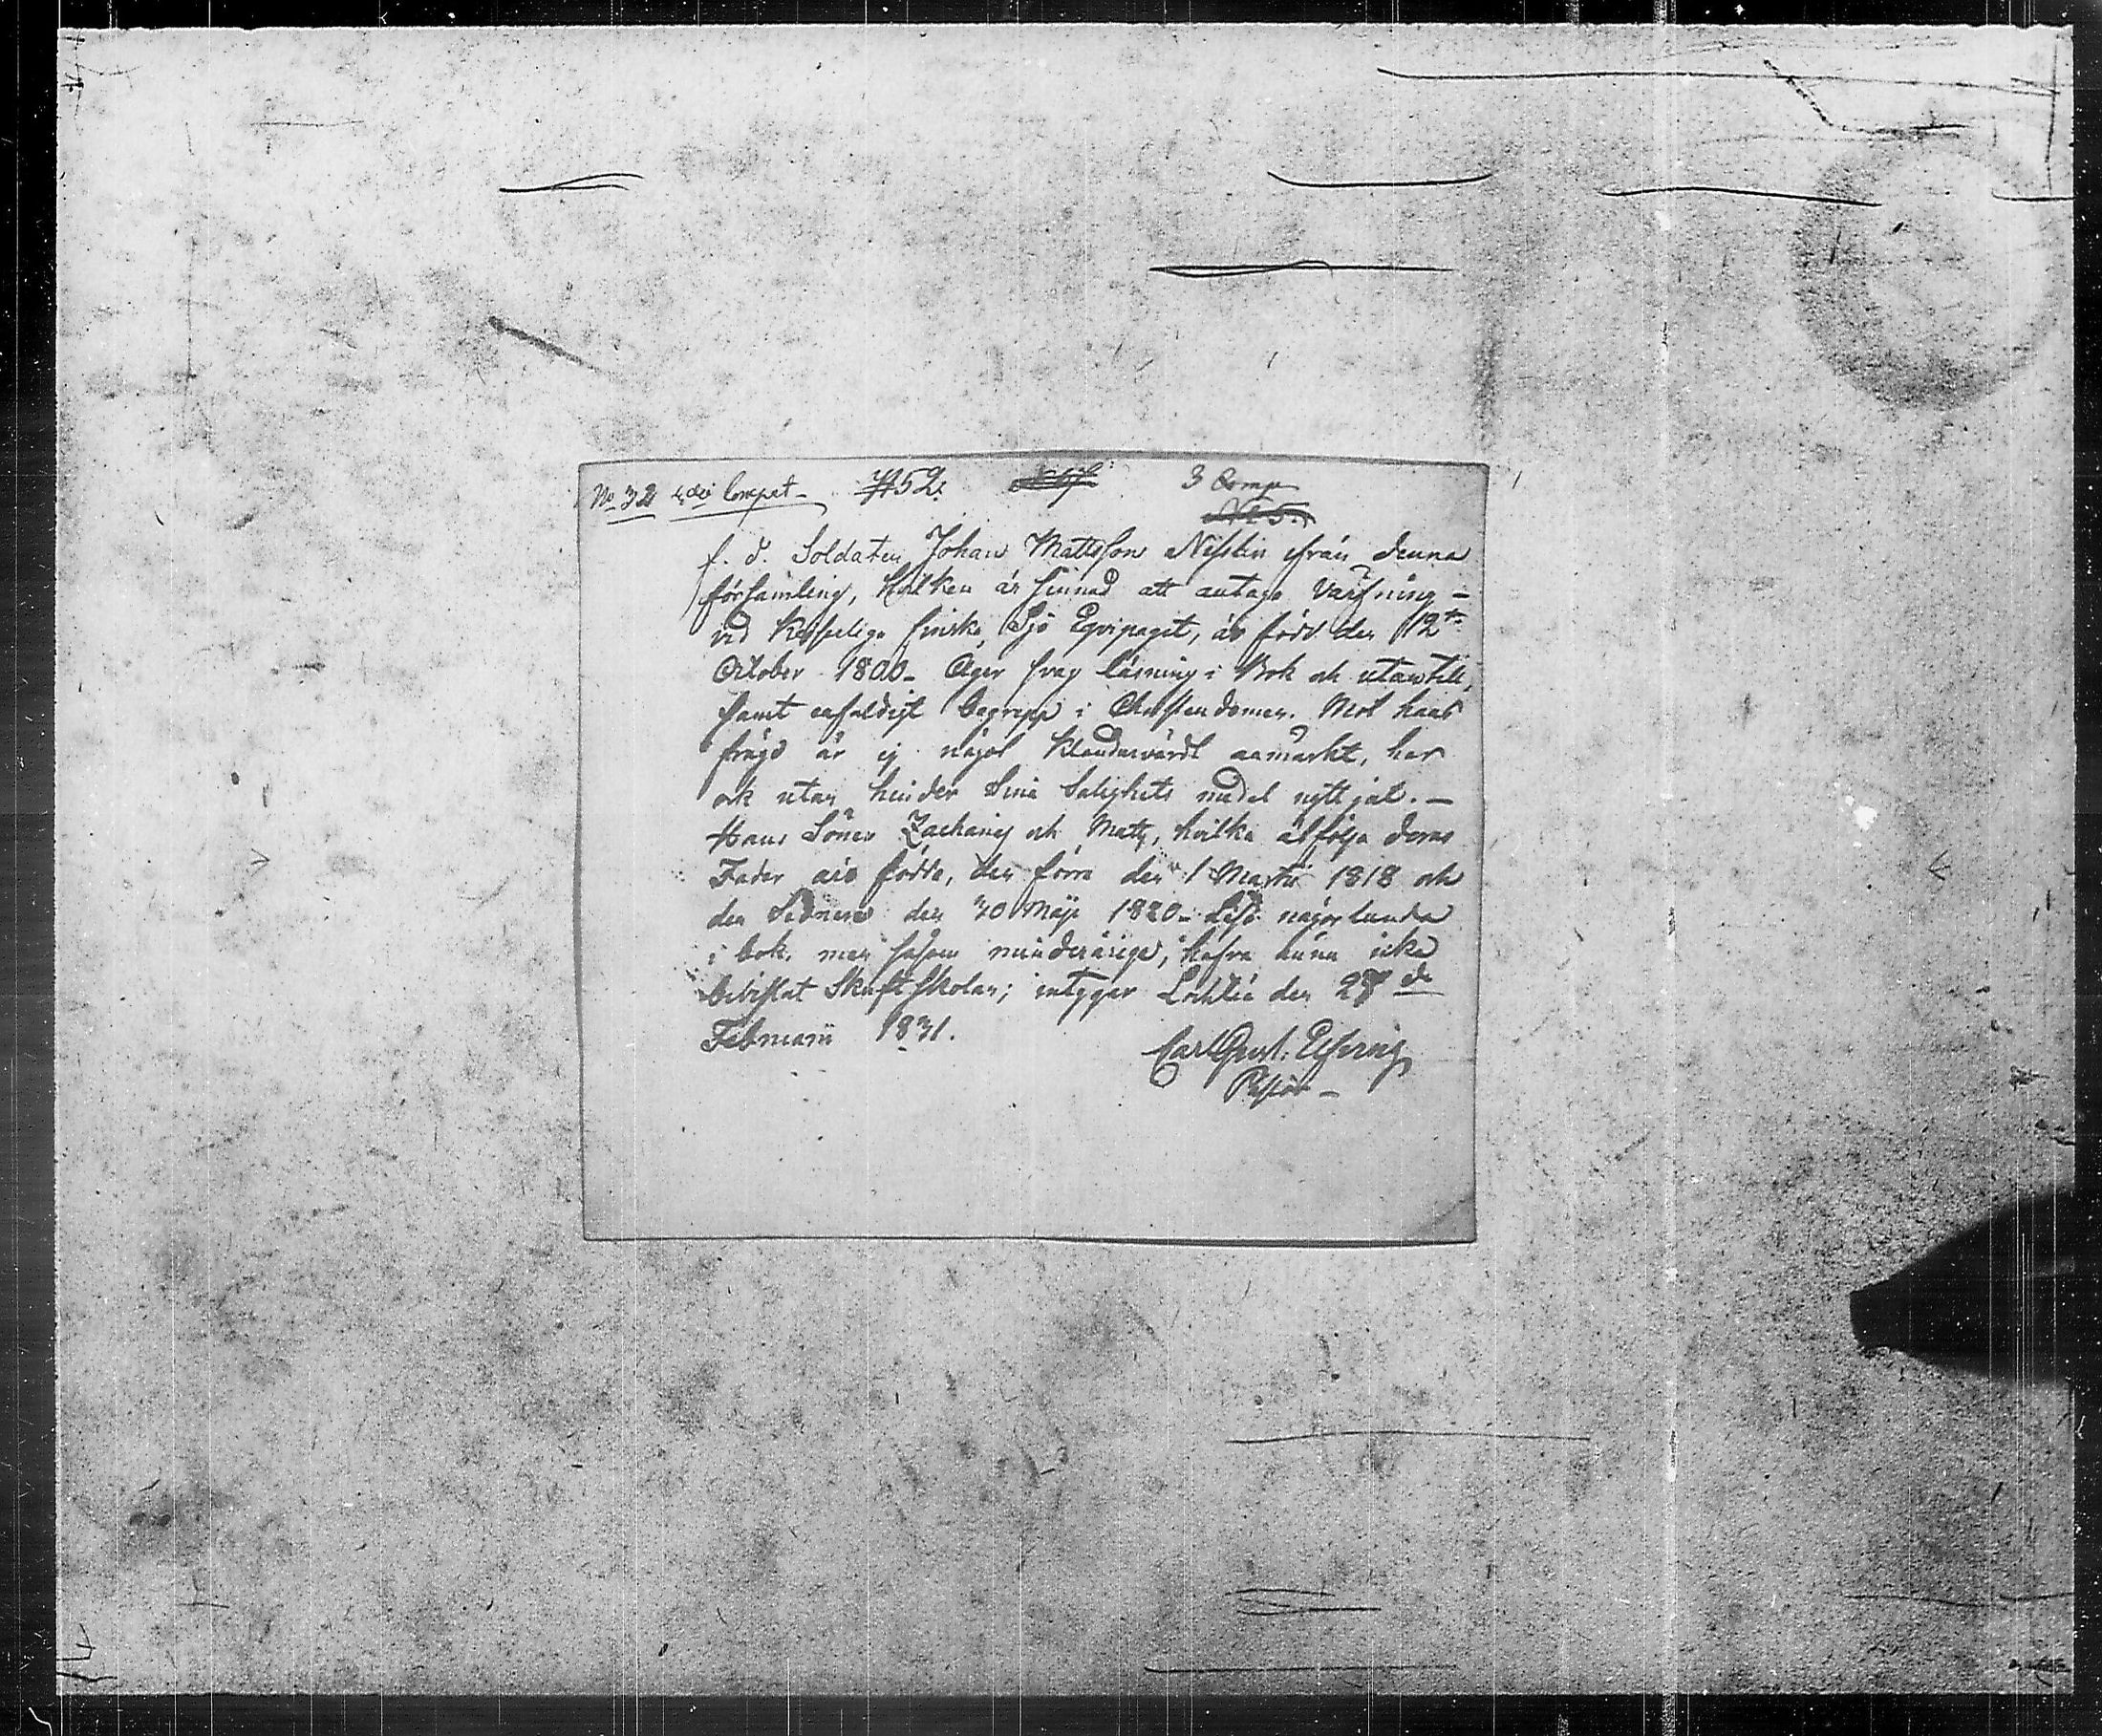 No 32 4de Compet. #52. 3 Comp
f. d. Soldaten Johan Mattsson Nissten ifrån denna
församling, hvilken är sinnad att antaga Värfning -
vid Kejserliga finska Sjö Eqvipaget, är född den 12te
October 1800. Äger svag läsning i Bok och utantill,
samt enfaldigt begrepp i Christendomen. Mot hans
frägd är ej något klandervärdt anmärkt, har
ock utan hinder Sina Salighets medel nyttjat. -
Hans Söner Zacharias och Matts, hvilka åtfölja deras
Fader äro födde, den förre den 1 Martii 1818 och
den Sednare den 30 Maji 1820. Läsa någorlunda
i bok, men såsom minderårige, hafva ännu icke
bevistat Skriftskolan; intygar Lochteå den 27de
Februarii 1831.
Carl Gust.
Pastor -